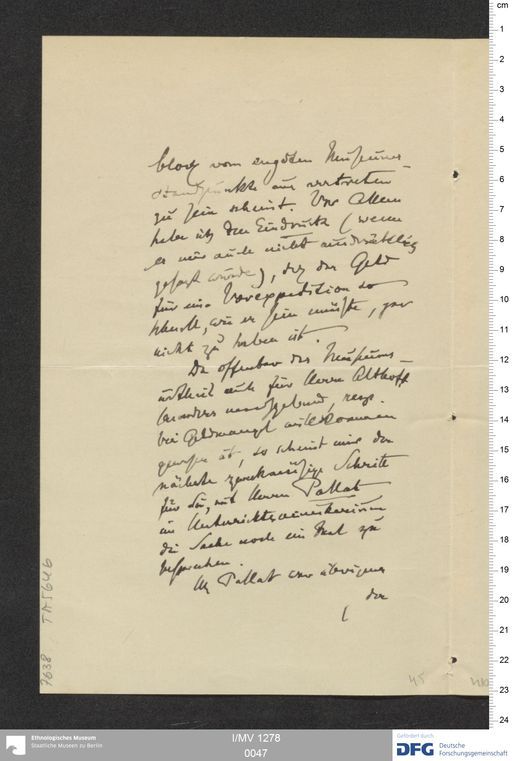 bloß vom engsten Museums-
standpunkte aus vertreten
zu sein scheint. Vor Allem
habe ich den Eindruck (wenn
es mir auch nicht ausdrücklich
gesagt wurde), daß das Geld
für eine Vorexpedition so
schnell, wie es sein müßte, gar
nicht zu haben ist.
Da offenbar das Museums-
urtheil auch für Herrn Althoff
besonders maßgebend, resp.
bei Geldmangel willkommen
gewesen ist, so scheint mir der
nächste zweckmäßige Schritt
für Sie, mit Herrn Pallat
im Unterrichtsministerium
die Sache noch ein Mal zu
besprechen.
Pallat war übrigens
der
7638 TA5646
45
cm
1
2
3
4
5
6
7
8
9
10
11
12
13
14
15
16
17
18
19
20
21
22
23
24
Ethnologisches Museum
Staatliche Museen zu Berlin
I/MV 1278
0047
Gefördert durch
DFG Deutsche
Forschungsgemeinschaft